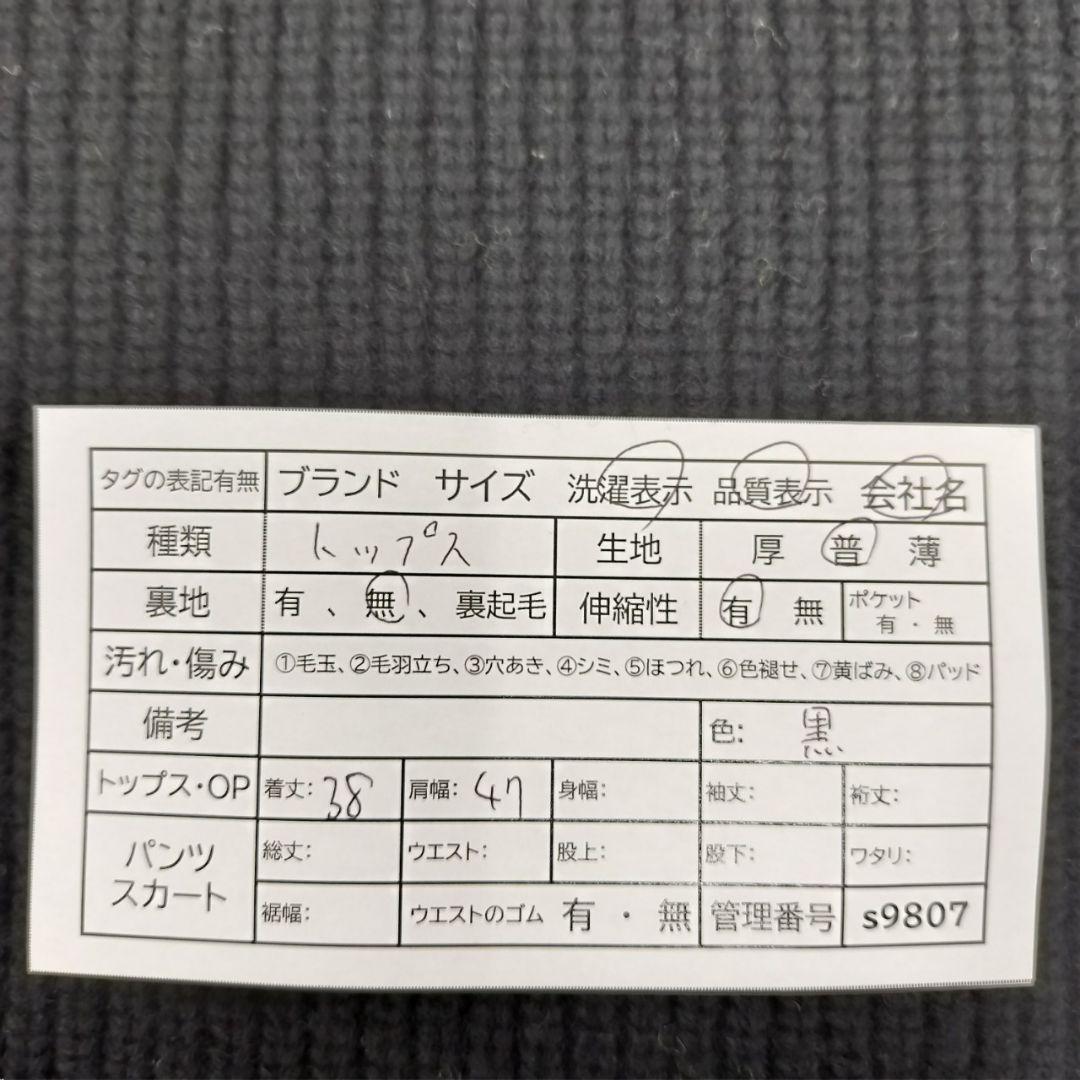 タグの表記有無 ブランド サイズ 洗濯表示 品質表示 会社名
種類 トップス 生地 厚 普 薄
裏地 有 、 無 、 裏起毛 伸縮性 有 無 ポケット 有 ・ 無
汚れ・傷み ①毛玉、②毛羽立ち、③穴あき、④シミ、⑤ほつれ、⑥色褪せ、⑦黄ばみ、⑧パッド
備考 色: 黒
トップス・OP 着丈: 38 肩幅: 47 身幅: 袖丈: 裄丈:
パンツ スカート 総丈: ウエスト: 股上: 股下: ワタリ:
裾幅: ウエストのゴム 有 ・ 無 管理番号 s9807